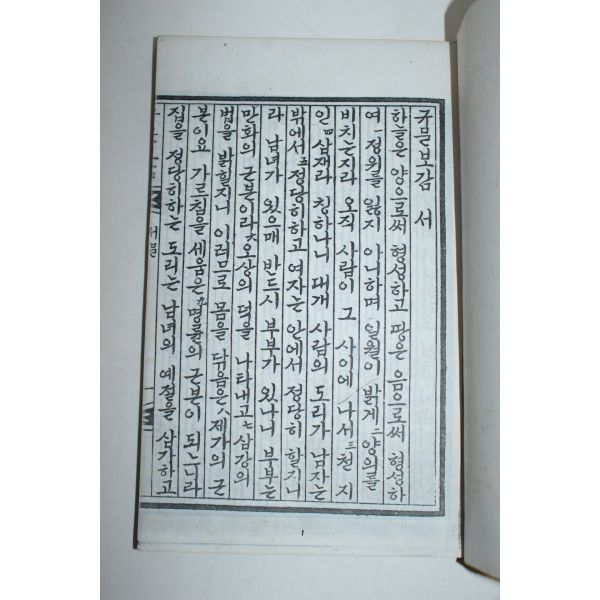 규문보감 서
하늘은 양으로써 형성하고 땅은 음으로써 형성하
여 一정위를 잃지 아니하며 일월이 밝게 二양의를
비치는지라 오직 사람이 그 사이에 나서 三천 지
인 四삼재라 칭하나니 대개 사람의 도리가 남자는
밖에서 五정당히하고 여자는 안에서 정당히 할지니
라 남녀가 있으매 반드시 부부가 있나니 부부는
만화의 근본이라 六오상의 덕을 나타내고 七삼강의
법을 밝힐지니 이러므로 몸을 닦음은 八제가의 근
본이요 가르침을 세움은 九명륜의 근본이 되느니라
집을 정당히하는 도리는 남녀의 예절을 삼가하고
서문
1